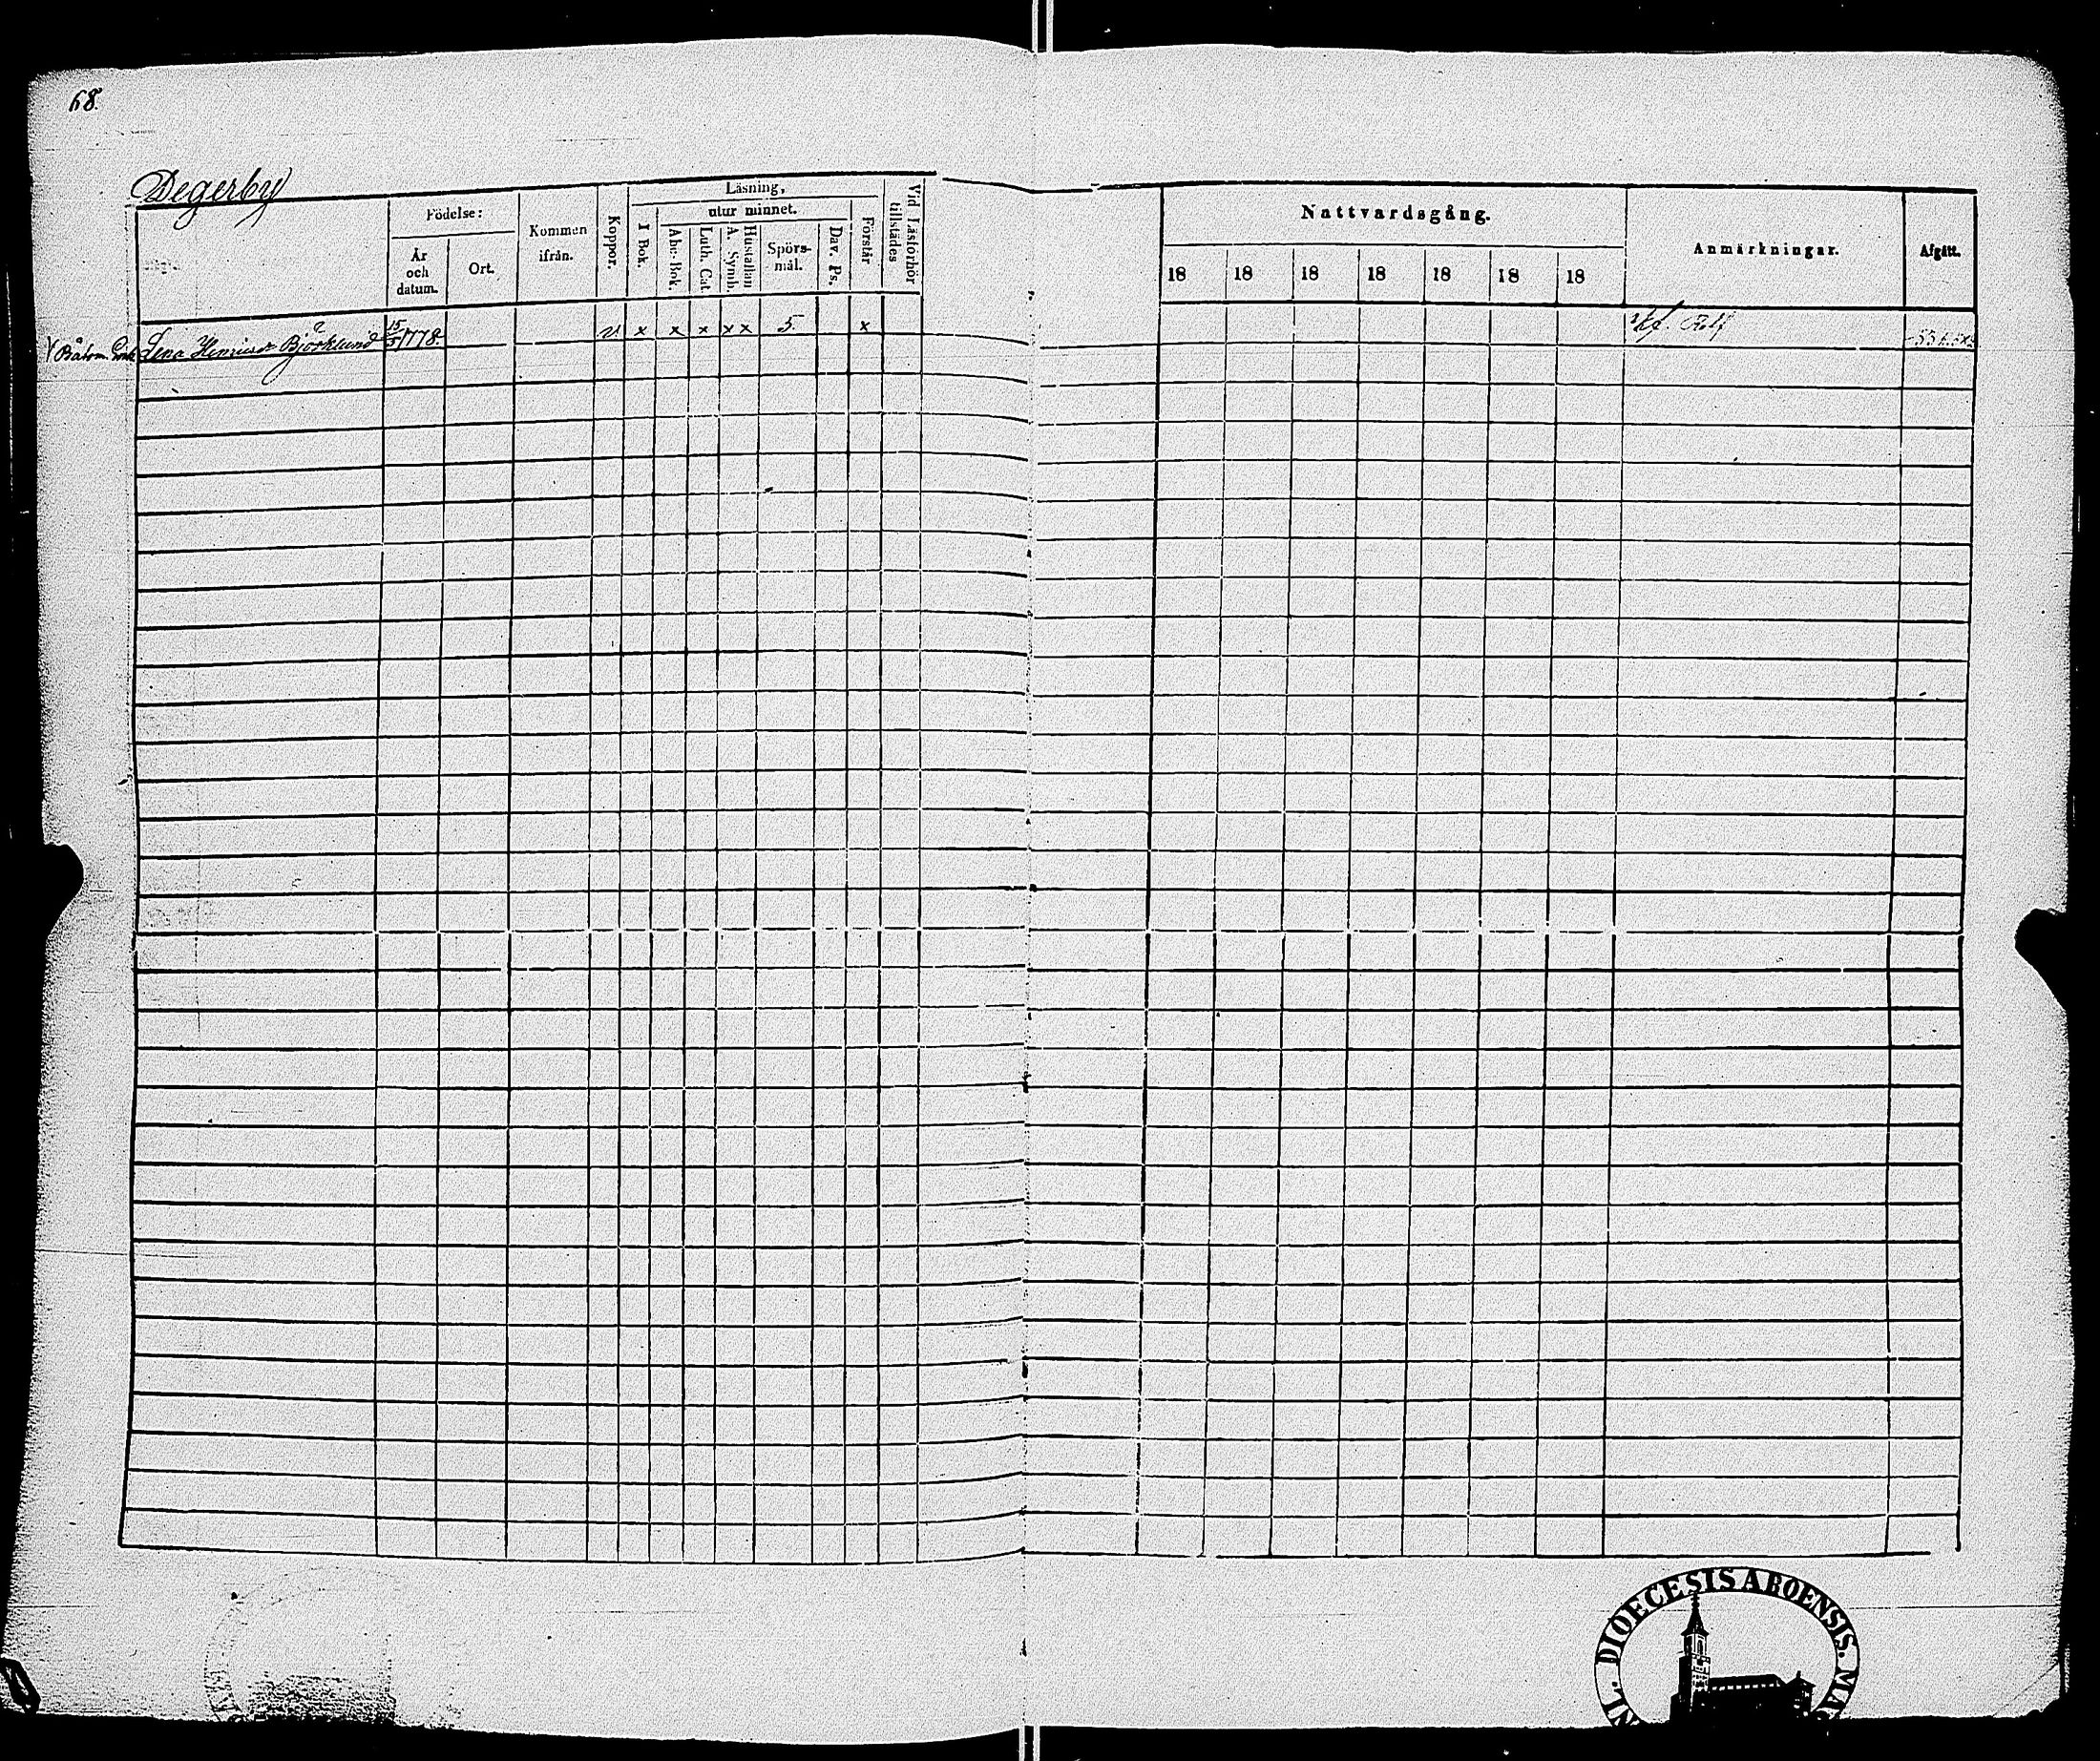 68.
Degerby
Födelse:
År och datum.
Ort.
Kommen ifrån.
Koppor.
Läsning,
I Bok.
utur minnet.
Abc-Bok.
Luth. Cat.
A. Symb.
Hustaflan
Spörs-mål.
Dav. Ps.
Förstår
Vid Läsförhör tillstädes
Nattvardsgång.
18 18 18 18 18 18 18
Anmärkningar.
Afgått.
Båtsm. Enk. Lena Henricsdr Björklund 15/5 1778. v x x x x x 5. x
DIOECESIS ABOENSIS.